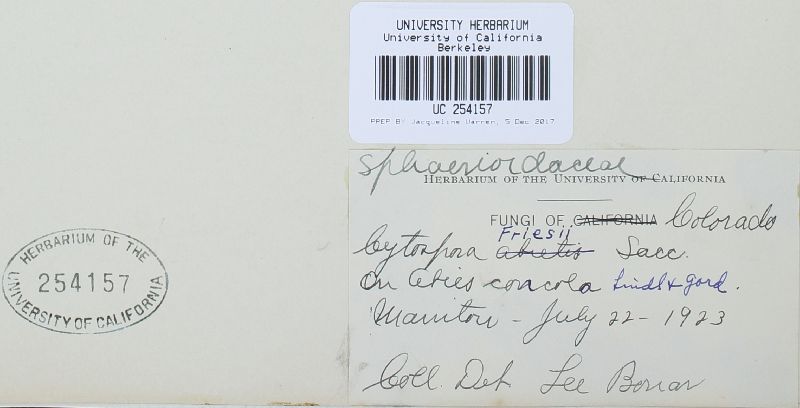 UNIVERSITY HERBARIUM
University of California
Berkeley
UC 254157
PREP BY Jacqueline Warren, 5 Dec 2017
Sphaerioidaceae
HERBARIUM OF THE UNIVERSITY OF CALIFORNIA
FUNGI OF CALIFORNIA Colorado
Friesii
Cytospora abietis Sacc.
On Abies concola Lindl & Gord.
Manitou - July 22 - 1923
Coll. Det. Lee Bonar
HERBARIUM OF THE
254157
UNIVERSITY OF CALIFORNIA